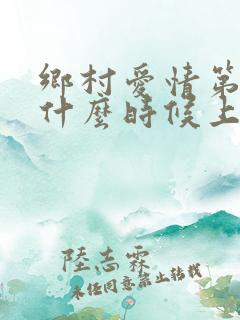 鄉村愛情第
什麼時候上
陸志霖
未經同意禁止轉載